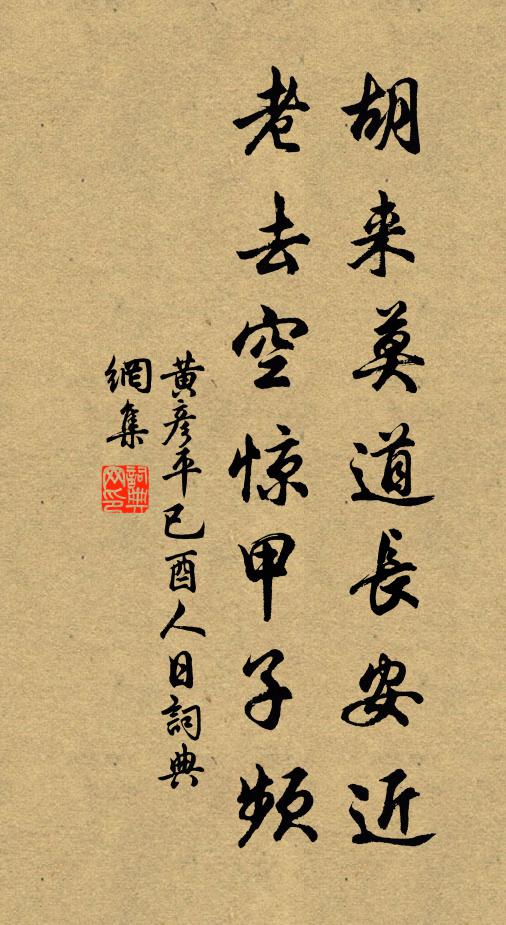 胡来莫道長安近
老去空惊甲子频
黄彦平已酉人日詞典
網集
詞典網印